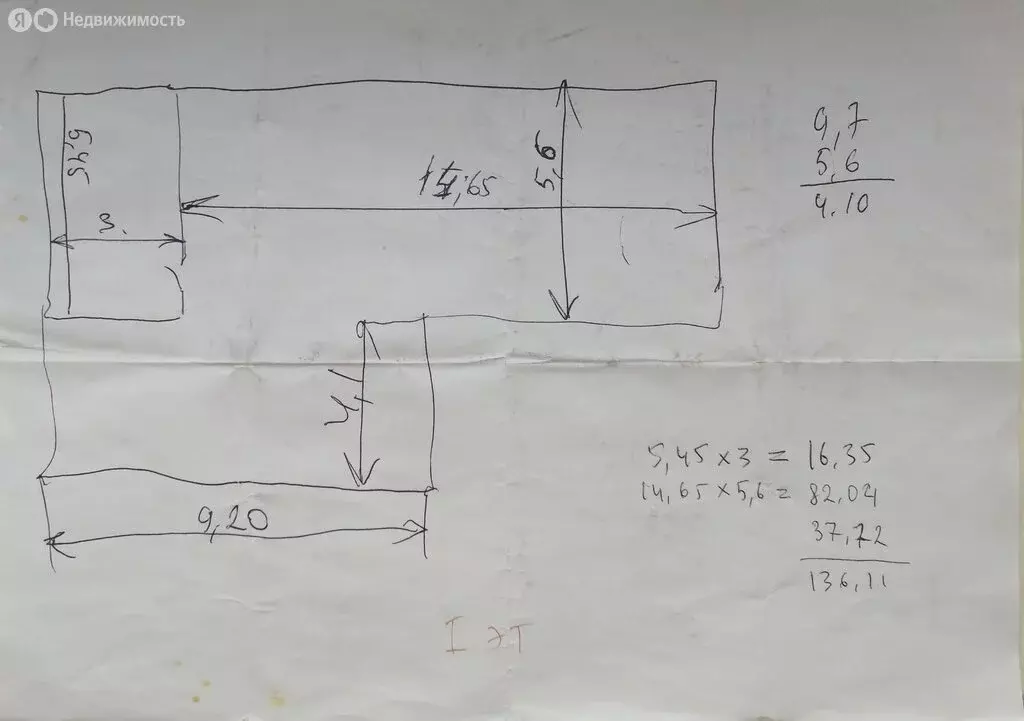 Я Недвижимость
5,45
3.
14,65
5,6
9,7
5,6
4.10
4,1
9,20
5,45 x 3 = 16,35
14,65 x 5,6 = 82,04
37,72
136,11
I эт